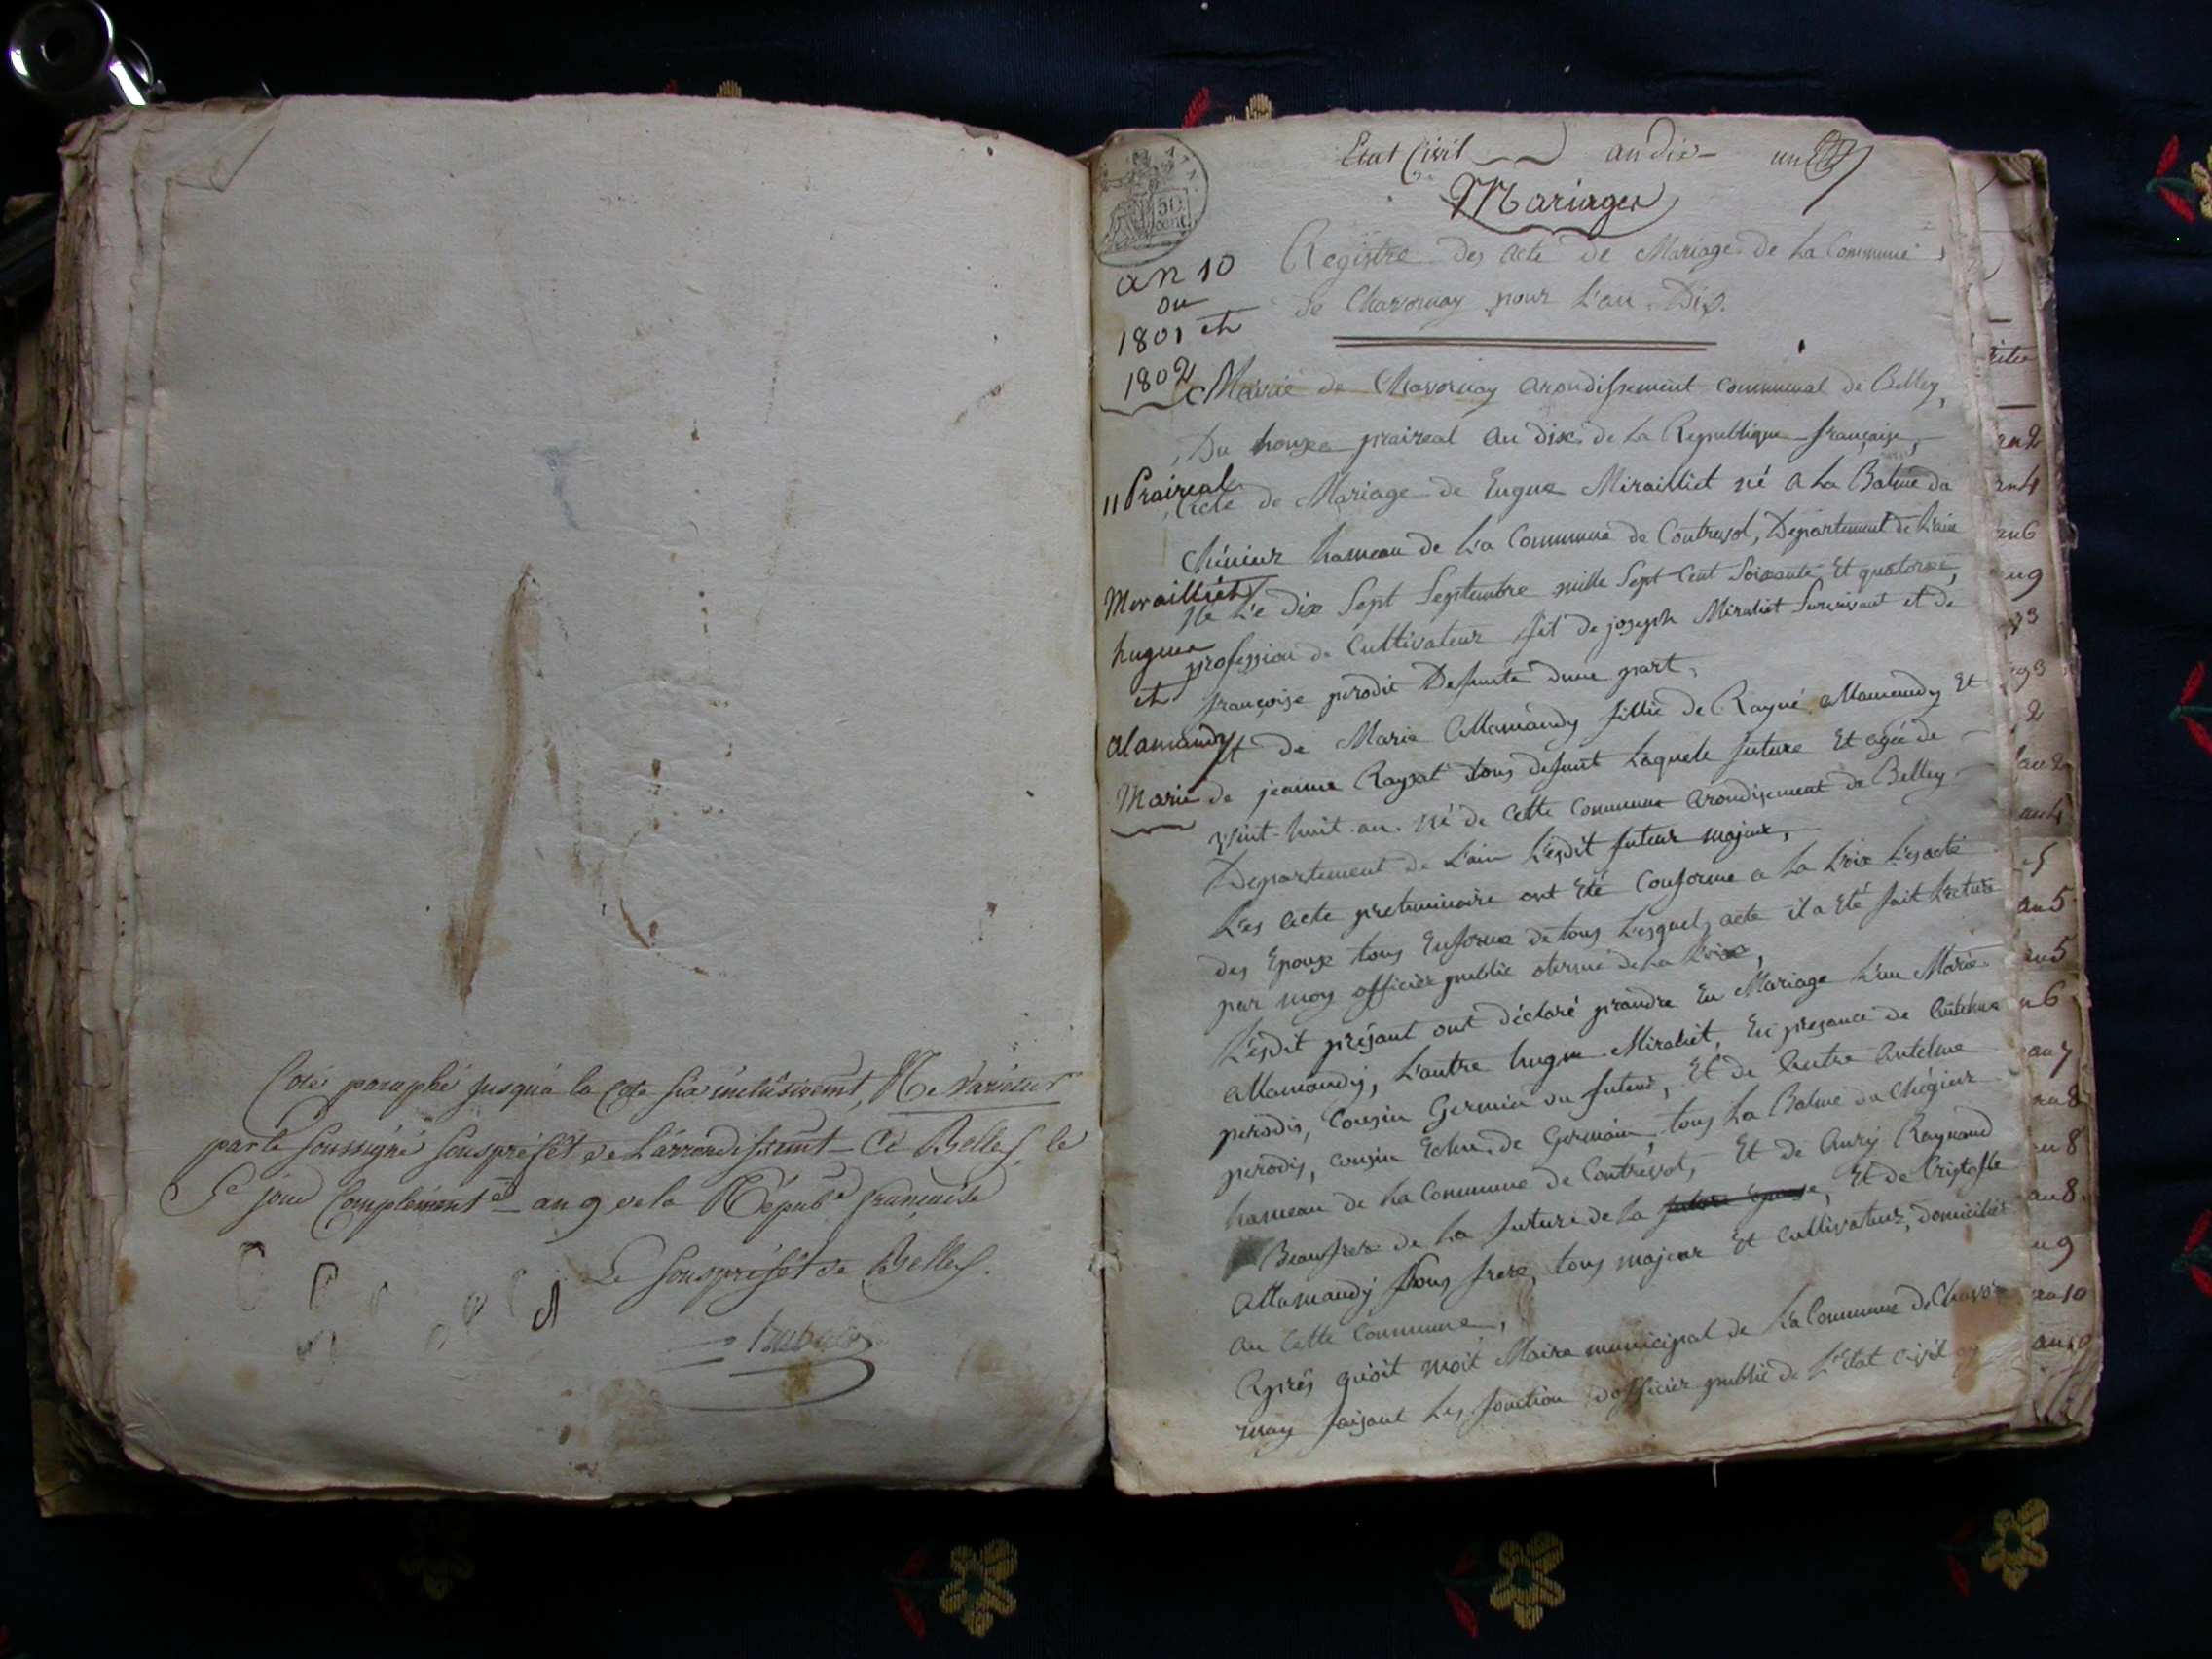 Coté paraphé jusqu'à la Cote six inclusivement, Ne Varietur
par le soussigné souspréfét de L'arrondissemt de Belley, le
5e jour Complémentre an 9 de la Répube française
Le souspréfét de Belley.
50
cent
Etat Civil an dix un
Mariages
an 10
ou
1801 et
1802
Registre des acte de Mariage de La Commune
de Chavornay pour L'an Dix.
Mairie de Chavornay arondissement communal de Belley,
Du honze praireal an dix de La Republique française,
11 Praireal
Acte de Mariage de Eugue Mirailliet né a La Balme da
Chénieur hameau de La Commune de Contrevol, Département de L'ain
Mirailliet
hugue
et
alamandy
Marie
Né Le Dix Sept Septembre mille Sept Cent Soixante Et quatorze,
profession de Cultivateur fit de joseph Miraliet Survivant et de
françoise perodit Defunte dune part,
Et de Marie Allamandy fillie de Rayné Allamandy Et
de jeanne Raysat tous defunt Laquele future Et agée de
vint-huit an. né de Cette Commune arondisement de Belley
Departement de L'ain Lesdit futeur majeur,
Les acte preluminaire ont Eté Conforme a La Loix Les acte
des Epoux tous Enforme de tous Lesquels acte il a Eté fait Lecture
par moy officier public oterme de La Loix,
Lesdit présant ont déclaré prandre En Mariage L'un Marie
Allamandy, L'autre hugue Miraliet, En presance de Antelme
perodis, Cousin Germin du futeur, Et de Autre Antelme
perodis, cousin de Germain, tous La Balme da Chégieur
hameau de La Commune de Contrevol, Et de Anry Raynaud
Beaufrere de La future de La future Epouse, Et de Cristofle
Allamandy frere, tous majeur Et cultivateur, domicilié
au Cette Commune,
Aprés qu'oit moit Maire municipal de La Commune de Chavor
nay faisant Les fonction dofficier public de L'Etat civil
an 2
an 4
an 6
an 9
an 2
an 4
an 5
an 5
an 6
an 7
an 8
an 8
an 8
an 9
an 10
an 10